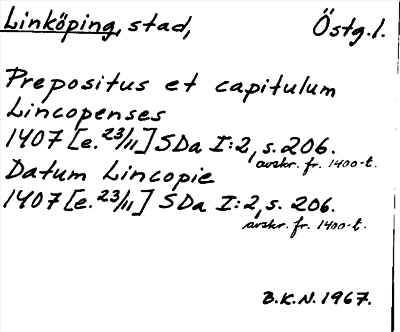 Linköping, stad, Östg.l.
Prepositus et capitulum
Lincopenses
1407 [e. 23/11] SDa I:2, s. 206.
avskr. fr. 1400-t.
Datum Lincopie
1407 [e. 23/11] SDa I:2, s. 206.
avskr. fr. 1400-t.
B.K.N. 1967.